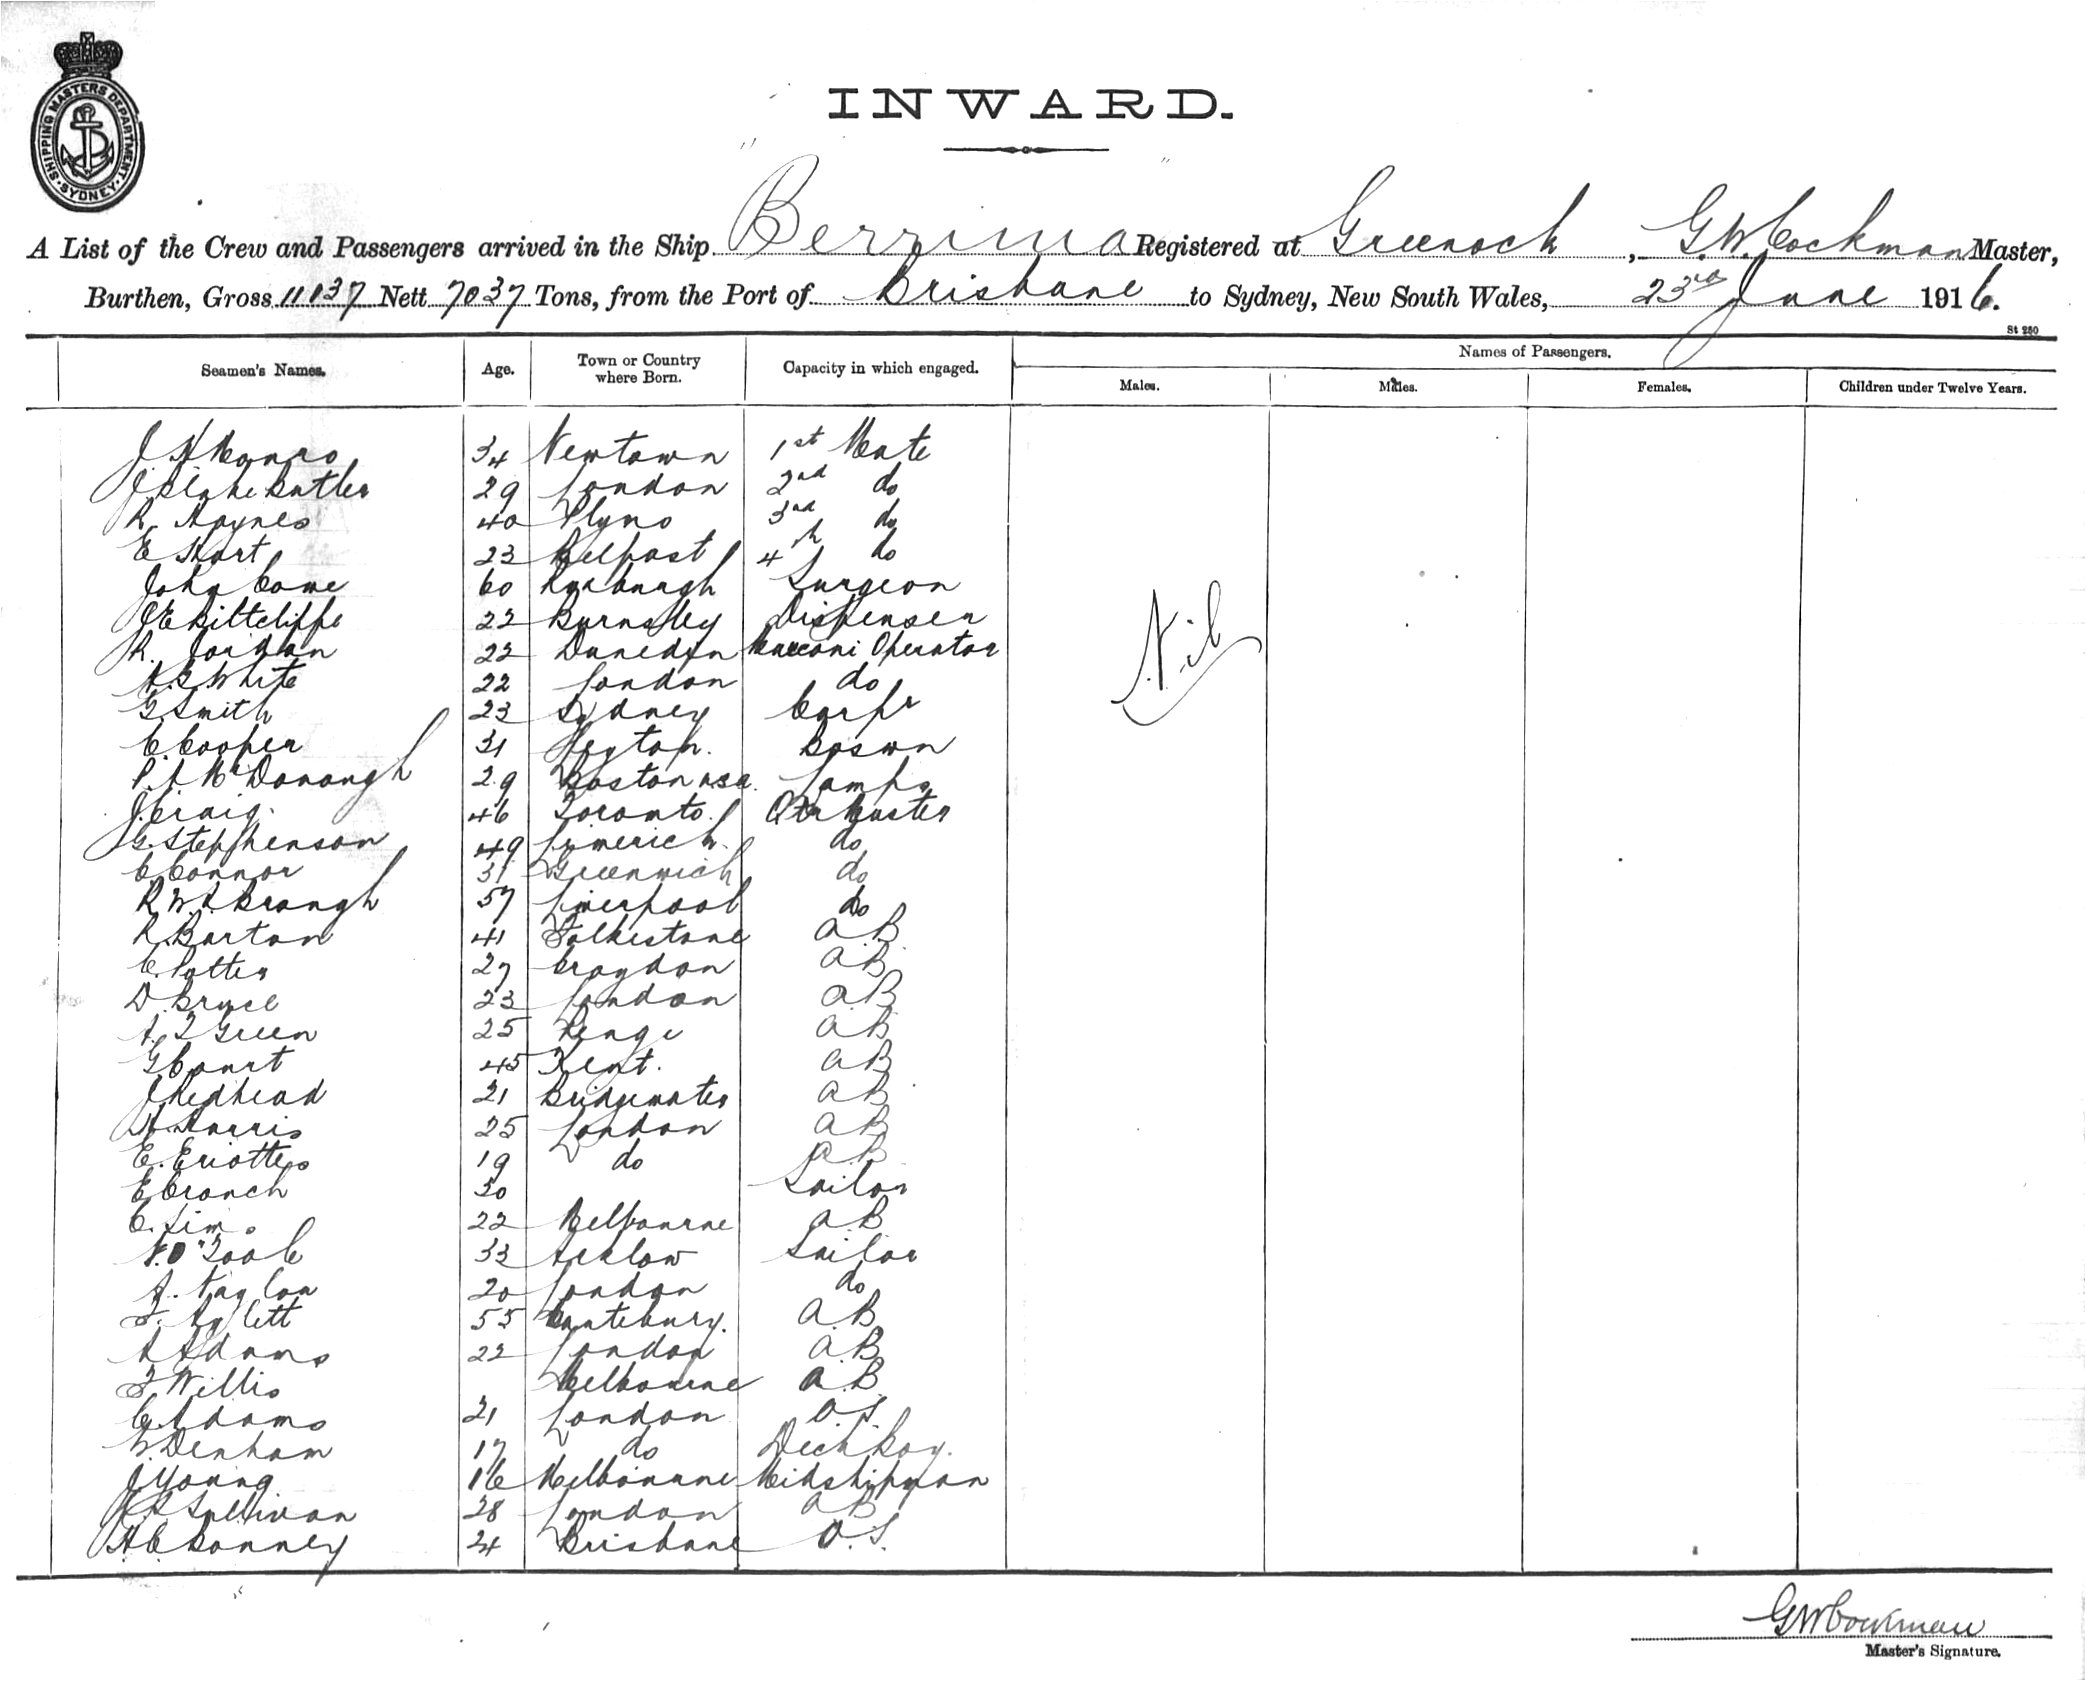 SHIPPING MASTERS DEPARTMENT
SYDNEY
INWARD.
A List of the Crew and Passengers arrived in the Ship Berrima Registered at Greenock, G.W. Cockman Master,
Burthen, Gross 11137 Nett 7037 Tons, from the Port of Brisbane to Sydney, New South Wales, 23rd June 1916.
St 250
Seamen's Names. Age. Town or Country where Born. Capacity in which engaged. Names of Passengers.
Males. Males. Females. Children under Twelve Years.
J. H. Monro 34 Newtown 1st Mate
J Blake Butler 29 London 2nd do
R. Haynes 40 Plymo 3rd do
E Short 23 Belfast 4th do
John Cowe 60 Roxburgh Surgeon
J E Biltcliffe 22 Barnsley Dispenser
R. Jordan 22 Dunedin Marconi Operator
A. G. White 22 London do
G. Smith 23 Sydney Carpr
C Cooper 31 Leyton. Boswn
P. A McDonough 29 Boston USA. Lamps
J. Craig. 46 Toronto. Qtr Master
G. Stephenson 49 Limerick. do
C Connor 31 Greenwich do
R W. A. Brough 57 Liverpool do
R. Barton 41 Folkestone AB
C. Potter 27 Croydon AB
D. Bryce 23 London AB
A. J Green 25 Penge AB
G Court 45 Kent. AB
J Redhead 21 Bridgewater AB
H. Harris 25 London AB
E. 19 do AB
E Cronch 30 Sailor
C. Sims 22 Melbourne AB
O'Toole 33 Arklow Sailor
A. Taylor 20 London do
F. Aylett 55 Cantebury. AB
A Adams 22 London AB
F Willis Melbourne A.B
C. Adams 21 London O.S.
W Denham 17 do Deck Boy.
J. Young 16 Melbourne Midshipman
Sullivan 28 London AB
H C Bonney 24 Brisbane O.S.
Nil
GWCockman
Master's Signature.